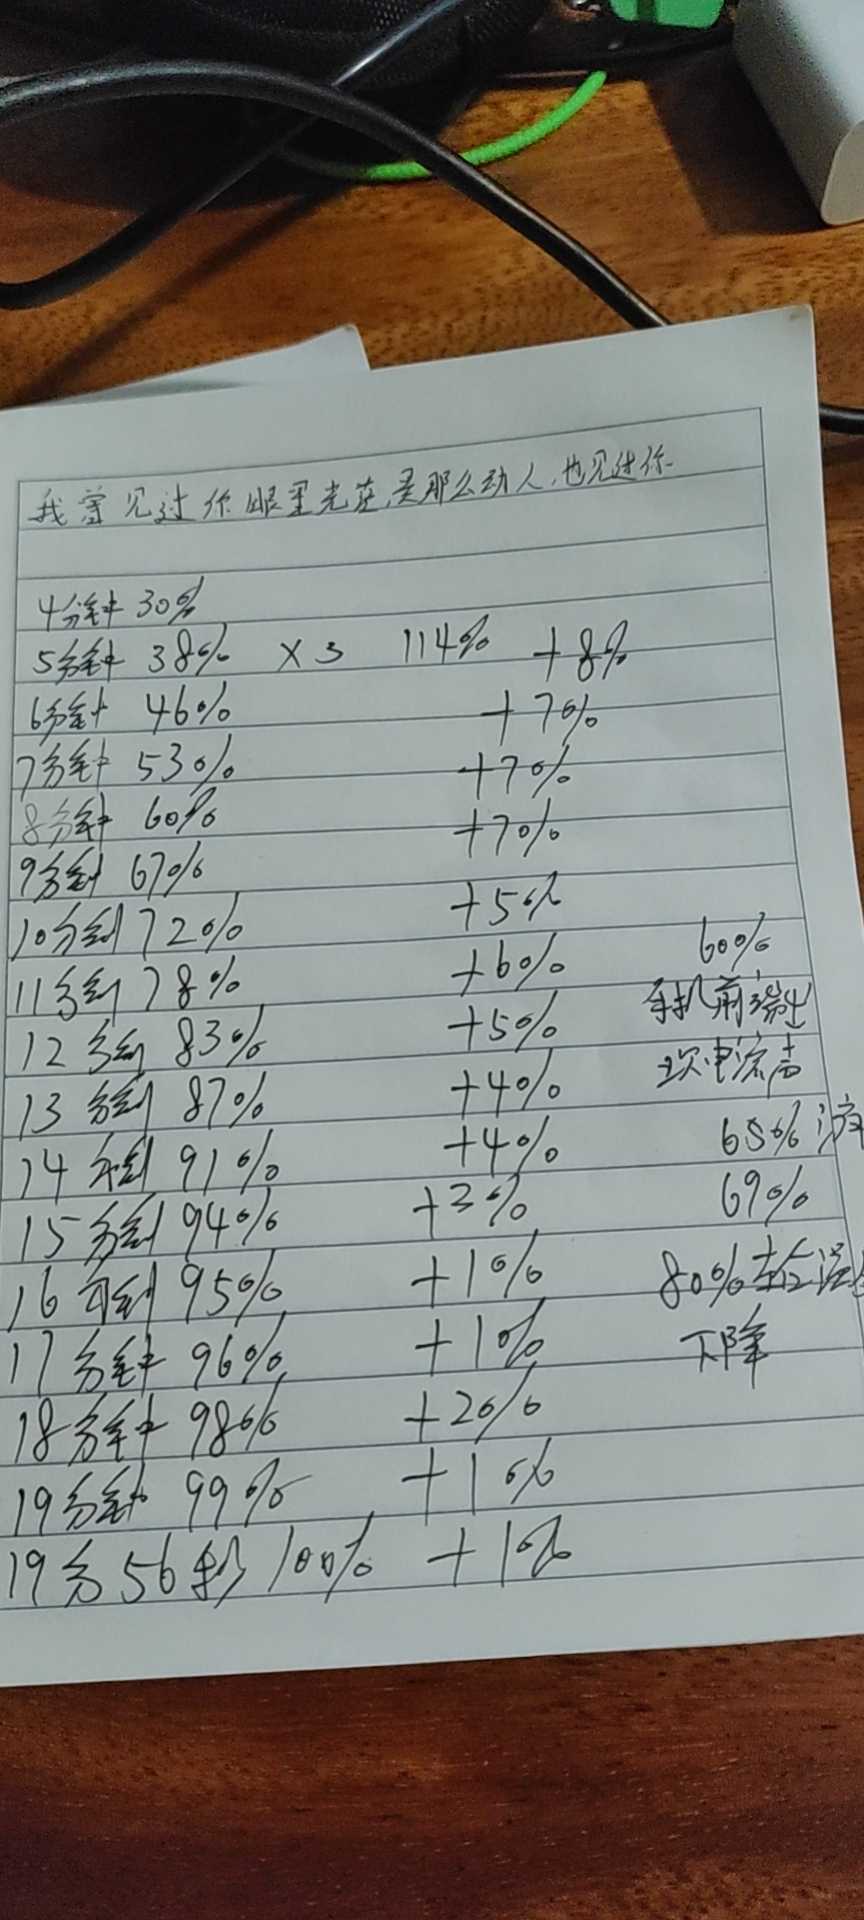 我曾见过你眼里光芒,是那么动人,也见过你
4分钟 30%
5分钟 38% ×3 114% +8%
6分钟 46% +7%
7分钟 53% +7%
8分钟 60% +7%
9分钟 67%
10分钟 72% +5%
11分钟 78% +6% 60%
12分钟 83% +5% 手机前端出
13分钟 87% +4% 现电流声
14分钟 91% +4% 65%
15分钟 94% +3% 69%
16分钟 95% +1% 80%左右温
17分钟 96% +1% 下降
18分钟 98% +2%
19分钟 99% +1%
19分56秒 100% +1%